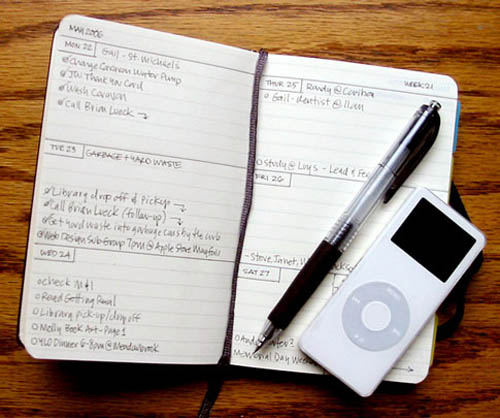 MAY 2006
MON 22 Gail - St. Michael's
Change Caravan Water Pump
JDV Thank You Card
Wash Caravan
Call Brian Lueck
TUE 23 GARBAGE + YARD WASTE
Library drop off & pickup
Call Brian Lueck (follow-up)
Get yard waste into garbage cans by the curb
Web Design Sub Group 7pm @ Apple Store Mayfair
WED 24
check M+I
Read Getting Real
Library pick-up/drop off
Molly Book Art - Page 1
YLO Dinner 6-8pm @ Meadowbrook
THUR 25 Randy @ WEEK 21
Gail - dentist @ 11am
Study @ Luy's - Lead &
FRI 26
- Steve, Janet,
SAT 27
Memorial Day
MENU